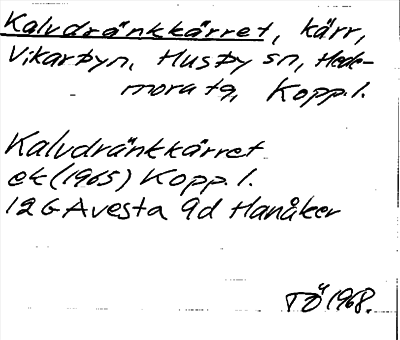 Kalvdränkkärret, kärr,
Vikarbyn, Husby sn, Hede-
mora tg, Kopp. l.
Kalvdränkkärret
ek (1965) Kopp. l.
12G Avesta 9d Hanåker
TÖ 1968.